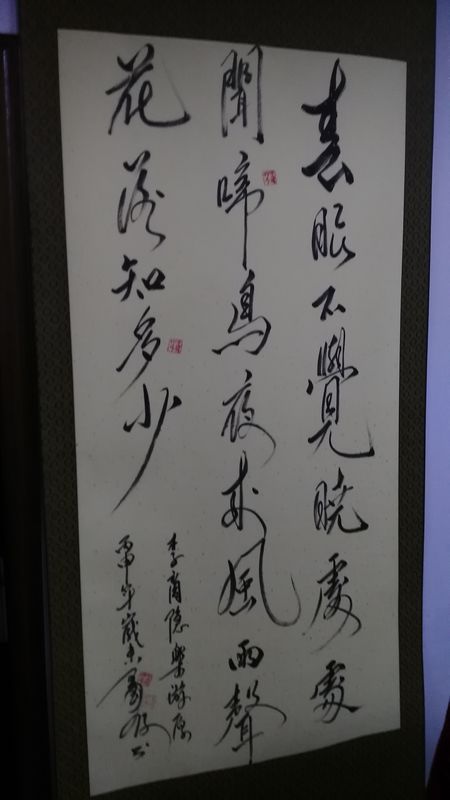 春眠不覺曉處處
聞啼鳥夜來風雨聲
花落知多少
李商隐樂游原
丙申年歲末